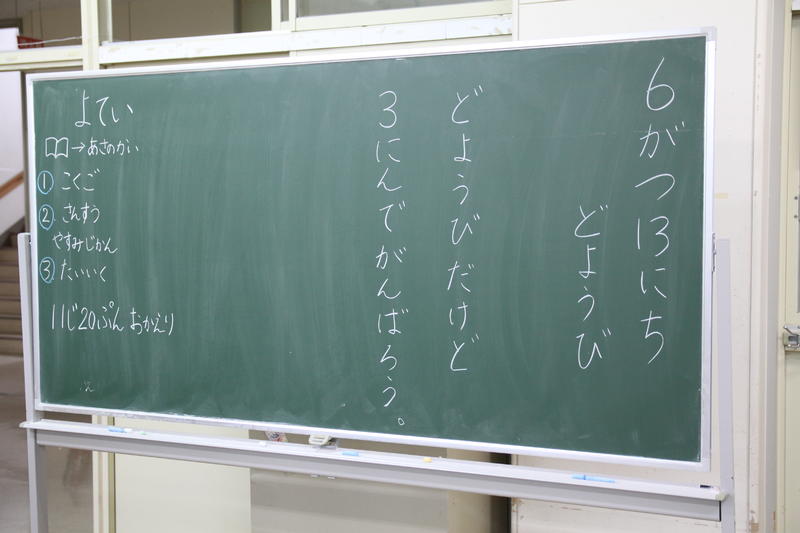 6がつ13にち
どようび
どようびだけど
3にんでがんばろう。
よてい
→あさのかい
① こくご
② さんすう
やすみじかん
③ たいいく
11じ20ぷん おかえり